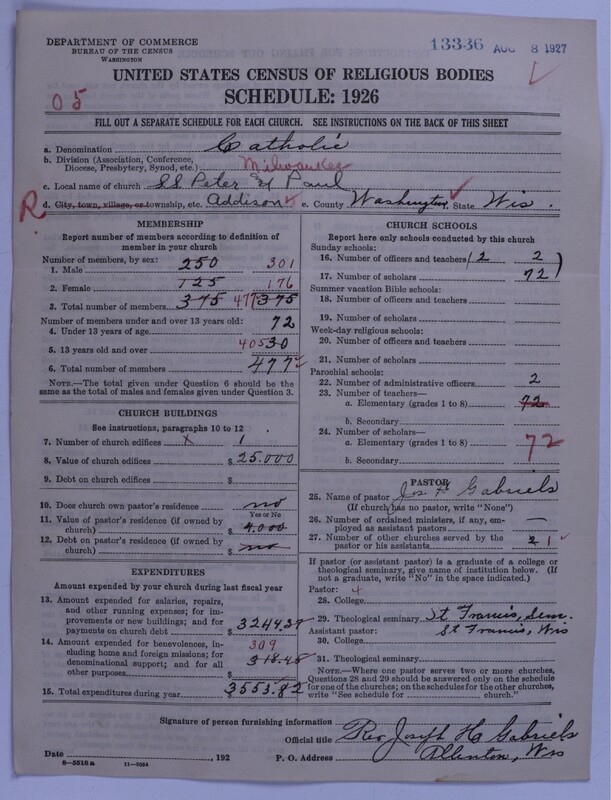 DEPARTMENT OF COMMERCE
BUREAU OF THE CENSUS
WASHINGTON
13336 AUG 8 1927
UNITED STATES CENSUS OF RELIGIOUS BODIES
SCHEDULE: 1926
05
FILL OUT A SEPARATE SCHEDULE FOR EACH CHURCH. SEE INSTRUCTIONS ON THE BACK OF THIS SHEET
a. Denomination Catholic
b. Division (Association, Conference, Diocese, Presbytery, Synod, etc.) Milwaukee
c. Local name of church SS Peter & Paul
R d. City, town, village, or township, etc. Addison e. County Washington State Wis.
MEMBERSHIP
Report number of members according to definition of member in your church
Number of members, by sex:
1. Male 250 301
2. Female 125 176
3. Total number of members 375 477 375
Number of members under and over 13 years old:
4. Under 13 years of age 72
5. 13 years old and over 405 30
6. Total number of members 477
NOTE.—The total given under Question 6 should be the same as the total of males and females given under Question 3.
CHURCH BUILDINGS
See instructions, paragraphs 10 to 12
7. Number of church edifices x 1
8. Value of church edifices $25.000
9. Debt on church edifices $
10. Does church own pastor's residence? no
Yes or No
11. Value of pastor's residence (if owned by church) $4.000
12. Debt on pastor's residence (if owned by church) $ no
EXPENDITURES
Amount expended by your church during last fiscal year
13. Amount expended for salaries, repairs, and other running expenses; for improvements or new building; and for payments on church debt $3244.37
14. Amount expended for benevolences, including home and foreign missions; for denominational support; and for all other purposes $ 309 318.45
15. Total expenditures during year $3553.82
CHURCH SCHOOLS
Report here only schools conducted by this church
Sunday schools:
16. Number of officers and teachers (2 2
17. Number of scholars 72)
Summer vacation Bible schools:
18. Number of officers and teachers
19. Number of scholars
Week-day religious schools:
20. Number of officers and teachers
21. Number of scholars
Parochial schools:
22. Number of administrative officers 2
23. Number of teachers—
a. Elementary (grades 1 to 8) 72
b. Secondary
24. Number of scholars—
a. Elementary (grades 1 to 8) 72
b. Secondary
PASTOR
25. Name of pastor Jos H Gabriels
(If church has no pastor, write "None")
26. Number of ordained ministers, if any, employed as assistant pastors —
27. Number of other churches served by the pastor or his assistants 2 1
If pastor (or assistant pastor) is a graduate of a college or theological seminary, give name of institution below. (If not a graduate, write "No" in the space indicated.)
Pastor: 4
28. College
29. Theological seminary St Francis, Sem.
Assistant pastor: St Francis, Wis
30. College
31. Theological seminary
NOTE.—Where one pastor serves two or more churches, Questions 28 and 29 should be answered only on the schedule for one of the churches; on the schedules for the other churches, write "See schedule for church."
Signature of person furnishing information
Official title Rev Joseph H Gabriels
Date , 192 P. O. Address Allenton, Wis
8—5518 a 11—9054